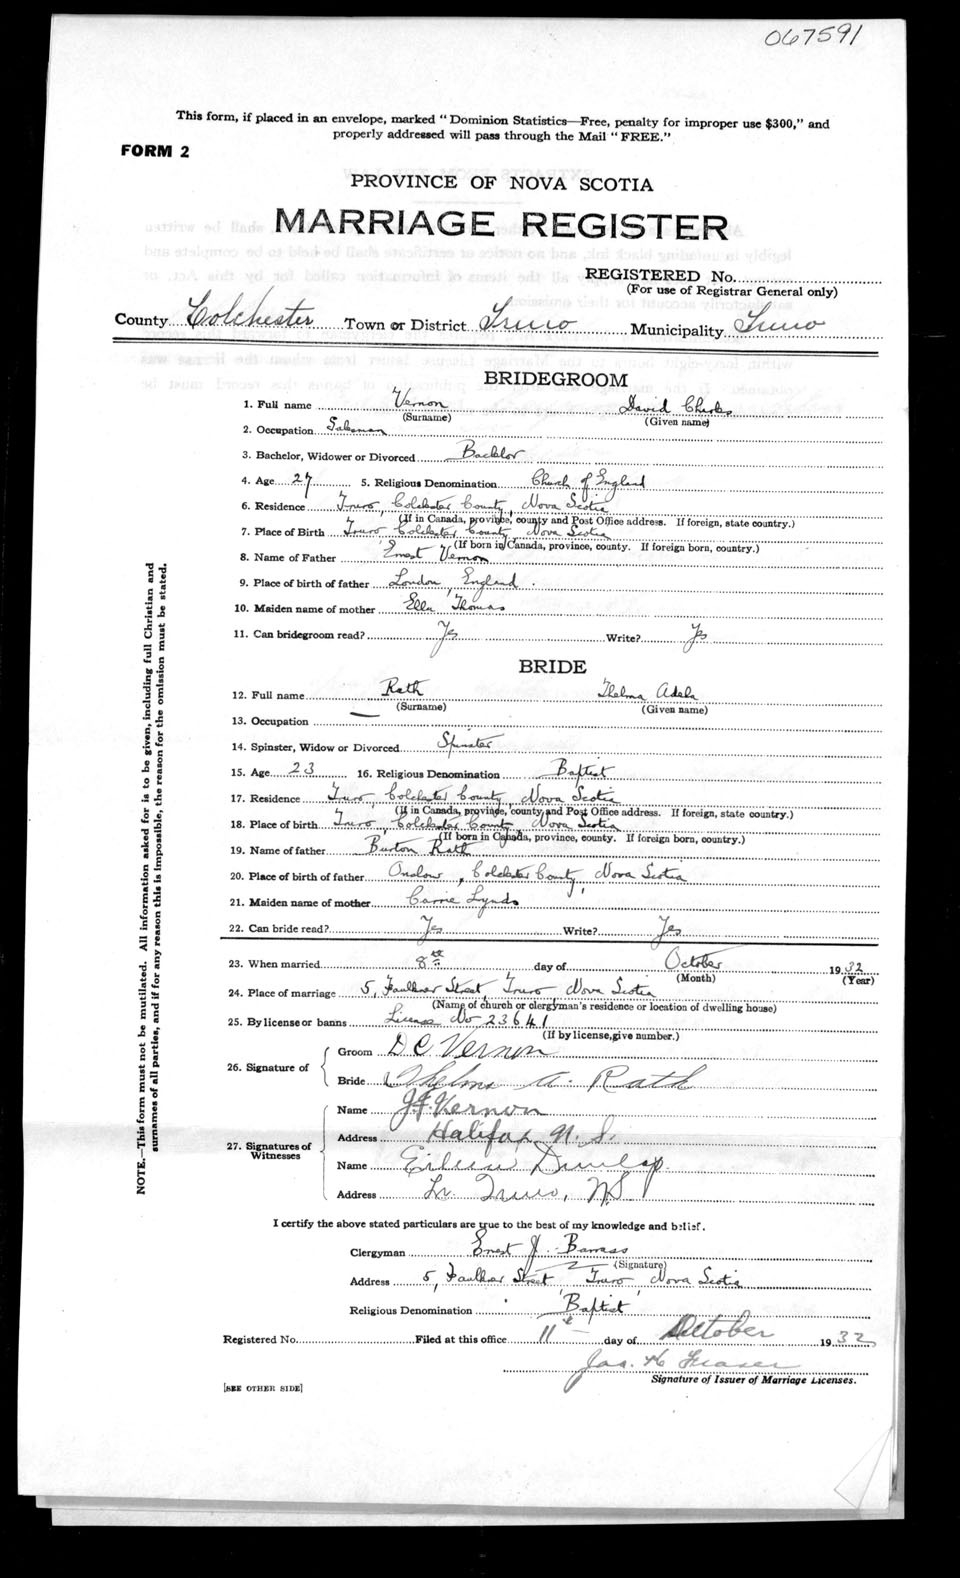 067591
This form, if placed in an envelope, marked "Dominion Statistics—Free, penalty for improper use $300," and
properly addressed will pass through the Mail "FREE."
FORM 2
PROVINCE OF NOVA SCOTIA
MARRIAGE REGISTER
REGISTERED No.
(For use of Registrar General only)
County Colchester Town or District Truro Municipality Truro
BRIDEGROOM
1. Full name Vernon David Charles
(Surname) (Given name)
2. Occupation Salesman
3. Bachelor, Widower or Divorced Bachlor
4. Age 27 5. Religious Denomination Church of England
6. Residence Truro, Colchester County, Nova Scotia
(If in Canada, province, county and Post Office address. If foreign, state country.)
7. Place of Birth Truro Colchester County, Nova Scotia
(If born in Canada, province, county. If foreign born, country.)
8. Name of Father Ernest Vernon
9. Place of birth of father London, England.
10. Maiden name of mother Ella Thomas
11. Can bridegroom read? Yes Write? Yes
BRIDE
12. Full name Rath Thelma Adela
(Surname) (Given name)
13. Occupation —
14. Spinster, Widow or Divorced Spinster
15. Age 23 16. Religious Denomination Baptist
17. Residence Truro, Colchester County, Nova Scotia
(If in Canada, province, county and Post Office address. If foreign, state country.)
18. Place of birth Truro, Colchester County, Nova Scotia
(If born in Canada, province, county. If foreign born, country.)
19. Name of father Burton Rath
20. Place of birth of father Onslow, Colchester County, Nova Scotia
21. Maiden name of mother Carrie Lynds
22. Can bride read? Yes Write? Yes
23. When married 8th day of October 1932
(Month) (Year)
24. Place of marriage 5, Faulkner Street, Truro Nova Scotia
(Name of church or clergyman's residence or location of dwelling house)
25. By license or banns License No 23641
(If by license, give number.)
26. Signature of
Groom D C Vernon
Bride Thelma A. Rath
27. Signatures of Witnesses
Name J.F. Vernon
Address Halifax, N. S.
Name Eileen Dunlap.
Address Lr. Truro, N.S
I certify the above stated particulars are true to the best of my knowledge and belief.
Clergyman Ernest J. Barrass
(Signature)
Address 5, Faulkner Street Truro, Nova Scotia
Religious Denomination Baptist
Registered No. Filed at this office 11th day of October 1932
Jas. K Fraser
Signature of Issuer of Marriage Licenses.
[SEE OTHER SIDE]
NOTE.—This form must not be mutilated. All information asked for is to be given, including full Christian and
surnames of all parties, and if for any reason this is impossible, the reason for the omission must be stated.